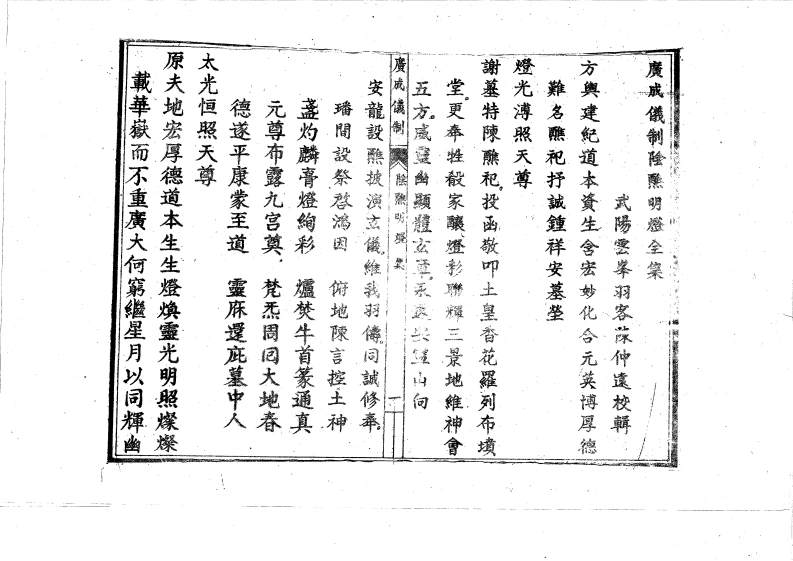 廣成儀制陰醮明燈全集
武陽雲峯羽客陳仲遠校輯
方輿建紀道本資生含宏妙化合元英博厚德
難名醮祀抒誠鍾祥安墓塋
燈光溥照天尊
謝墓特陳醮祀投函敬叩土皇香花羅列布墳
堂更奉牲殽家釀燈彩聯輝三景地維神會
五方威靈幽顯體玄 山向
廣成儀制
陰醮明燈集
一
安龍設醮披演玄儀維我羽儔同誠修奉
璠閒設祭啓鴻因 俯地陳言控土神
盞灼麟膏燈絢彩 爐焚牛首篆通真
元尊布露九宮奠 梵炁周回大地春
德遂平康蒙至道 靈庥還庇墓中人
太光恒照天尊
原夫地宏厚德道本生生燈煥靈光明照燦燦
載華嶽而不重廣大何窮繼星月以同輝幽